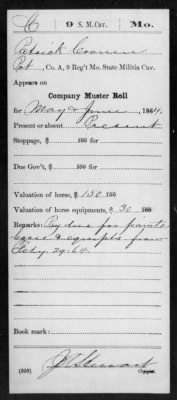 C 9 S. M. Cav. Mo.
Patrick Cronin
Pvt, Co. A, 9 Reg't Mo. State Militia Cav.
Appears on
Company Muster Roll
for May & June, 1864.
Present or absent Present
Stoppage, $ 100 for
Due Gov't, $ 100 for
Valuation of horse, $ 130 100
Valuation of horse equipments, $ 30 100
Remarks: Pay due for private
horse & equipts from
Feby 29. 64.
Book mark:
(858)
J. R. Stewart
Copyist.